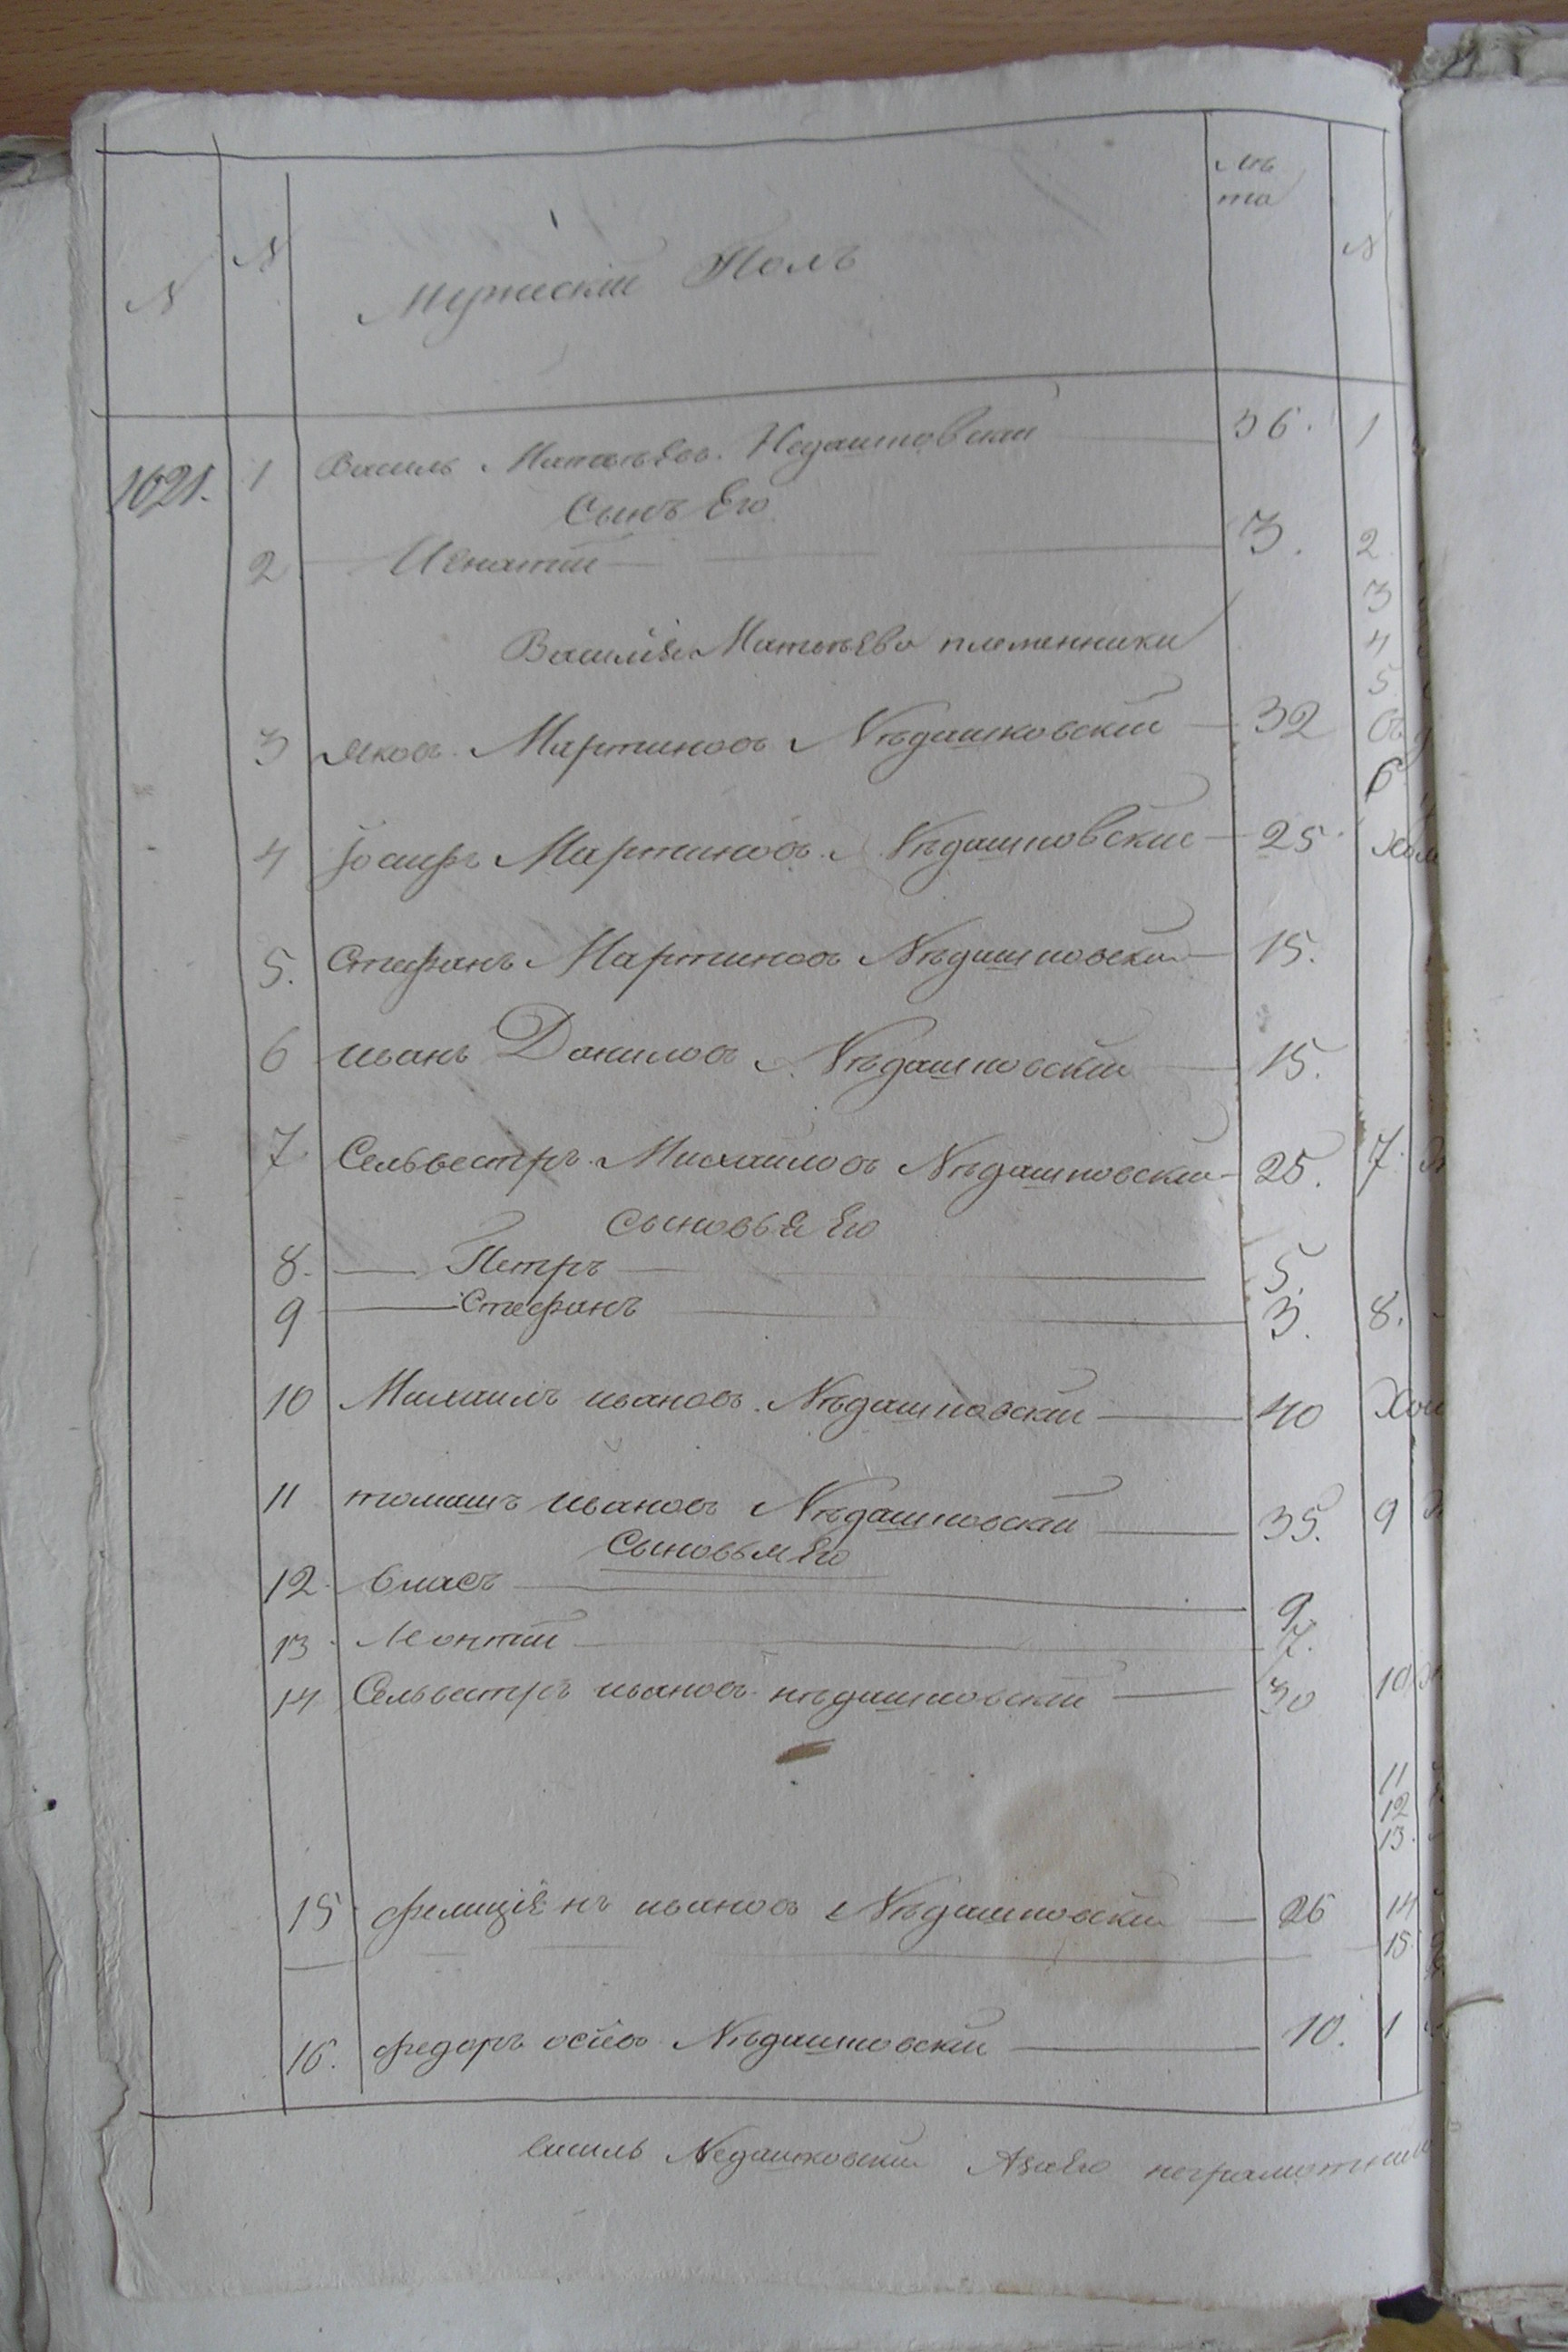 N N Мужескій Полъ лѣ та N
1021. 1 Василь Матвѣевъ Недашковскій 36. 1
Сынъ Его
2 Игнатій 3. 2
3
Василія Матвѣева племенники 4
5
3 Яковъ Мартиновъ Нѣдашковскій 32
6
4 Іосифъ Мартиновъ Нѣдашковскій 25
5. Стефанъ Мартиновъ Нѣдашковскій 15.
6 иванъ Даниловъ Нѣдашковскій 15.
7 Сельвестръ Михаиловъ Нѣдашковскій 25. 7.
сыновья Его
8. Петръ 5.
9 Стефанъ 3. 8.
10 Михаилъ ивановъ Нѣдашковскій 40
11 томашъ ивановъ Нѣдашковскій 35. 9
Сыновья Его
12. власъ 9
13 Леонтій 7.
14 Сельвестръ ивановъ нѣдашковскій 30 10
11
12
13.
15 фелиціянъ ивановъ Нѣдашковскій 26 14
15
16. федоръ осиѣвъ Нѣдашковскій 10. 1
василь Недашковскій Азаего неграмотнаго